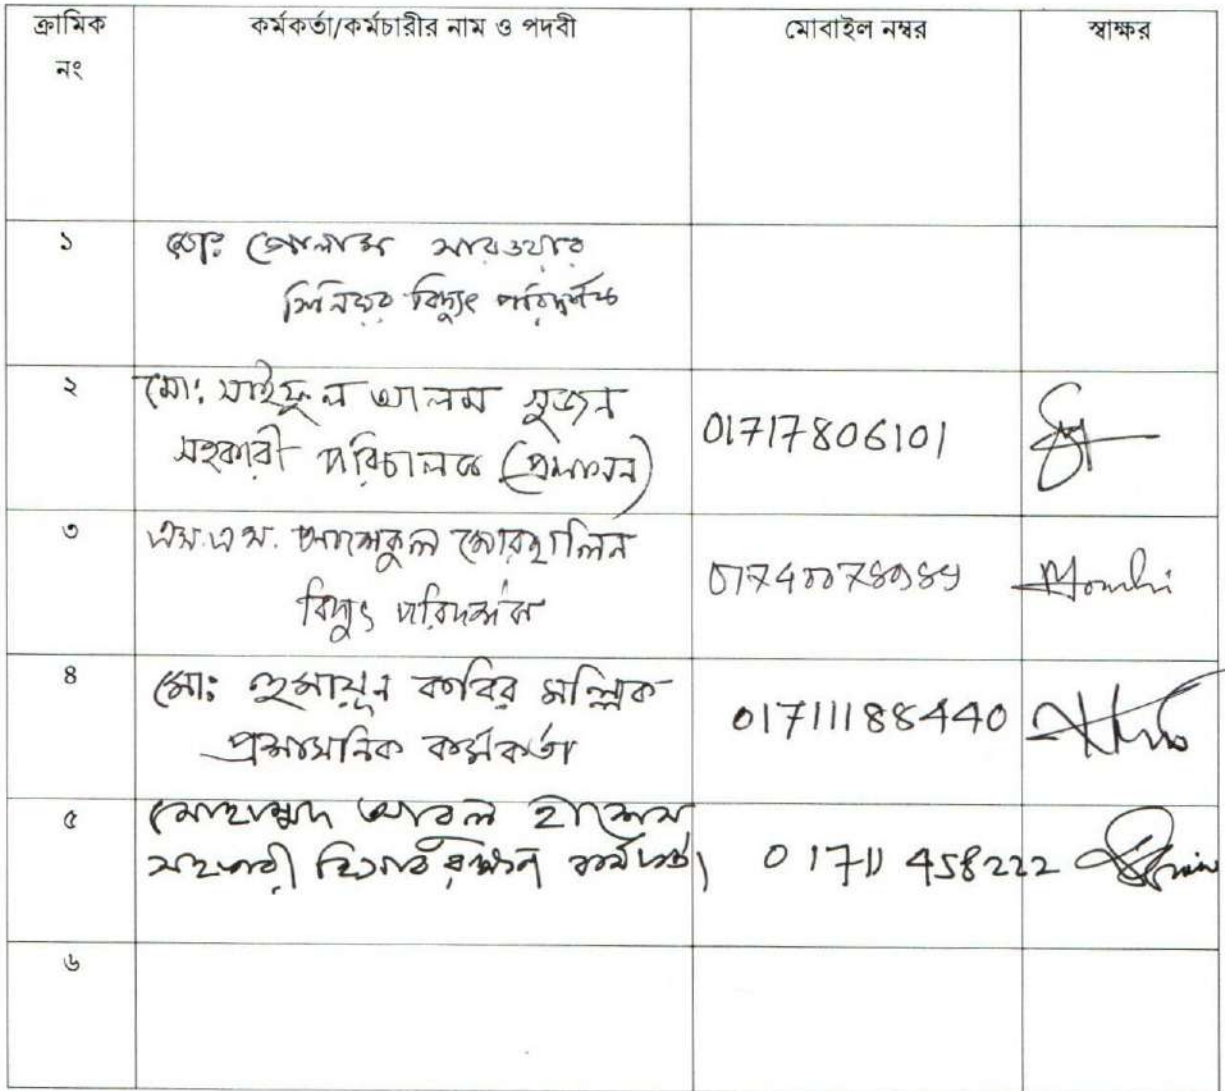 ক্রামিক কর্মকর্তা/কর্মচারীর নাম ও পদবী মোবাইল নম্বর স্বাক্ষর
নং
১ মোঃ গোলাম সারওয়ার
সিনিয়র বিদ্যুৎ পরিদর্শক
২ মো: সাইফুল আলম সুজন
সহকারী পরিচালক (প্রশাসন) 01717806101
৩ এস.এম. আশেকুল মোরছালিন
বিদ্যুৎ পরিদর্শক
৪ মো: হুমায়ুন কবির মল্লিক
প্রশাসনিক কর্মকর্তা 01711188440
৫ মোহাম্মদ আবুল হাশেম
সহকারী হিসাব রক্ষণ কর্মকর্তা 01711 458222
৬